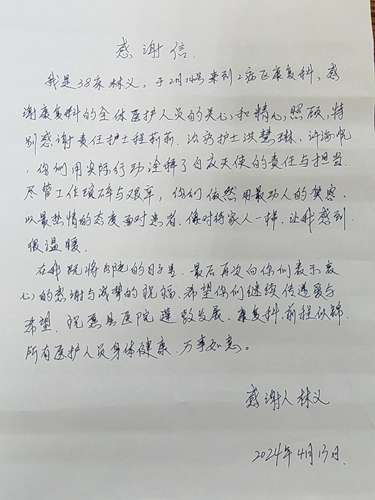 感谢信
我是38床林义,于2月14号来到2病区康复科,感
谢康复科的全体医护人员的关心和精心照顾,特
别感谢责任护士程莉莉、治疗护士洪慧琳、许海帆
,你们用实际行动诠释了白衣天使的责任与担当。
尽管工作琐碎与艰辛,你们依然用最动人的笑容
以最热情的态度面对患者,像对待家人一样,让我感到
很温暖。
在我现将出院的日子里,最后再次向你们表示衷
心的感谢与诚挚的祝福,希望你们继续传递爱与
希望,祝惠县医院蓬勃发展,康复科前程似锦,
所有医护人员身体健康、万事如意。
感谢人 林义
2024年4月13日.